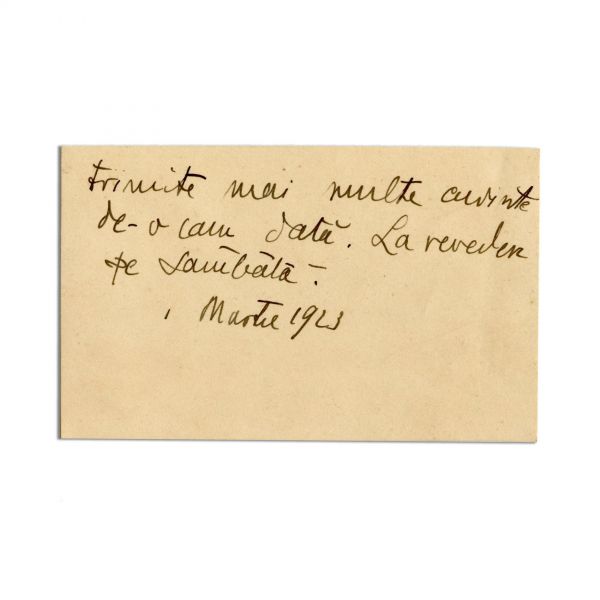 trimite mai multe cuvinte
de-o cam dată. La revedere
pe Sâmbătă.
1 Martie 1923